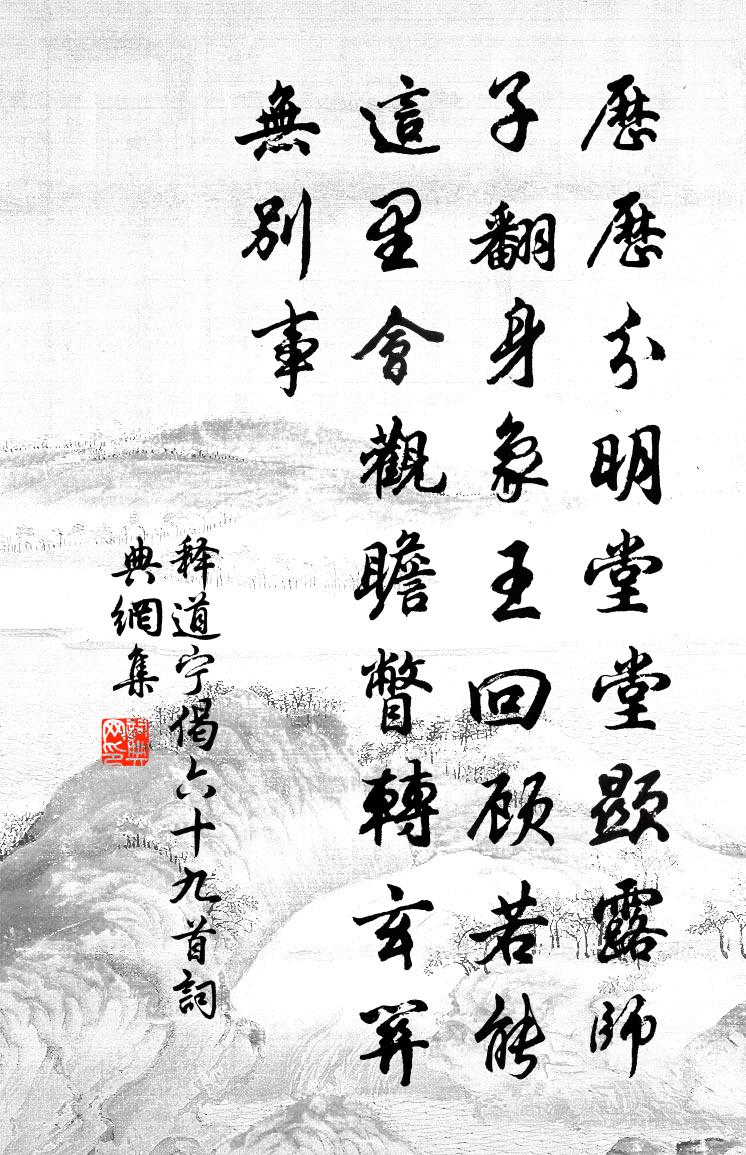 歷歷分明堂堂顯露師
子翻身象王回顧若能
這里會觀瞻瞥轉玄關
無別事
释道宁偈六十九首詞
典網集
詞典
网印